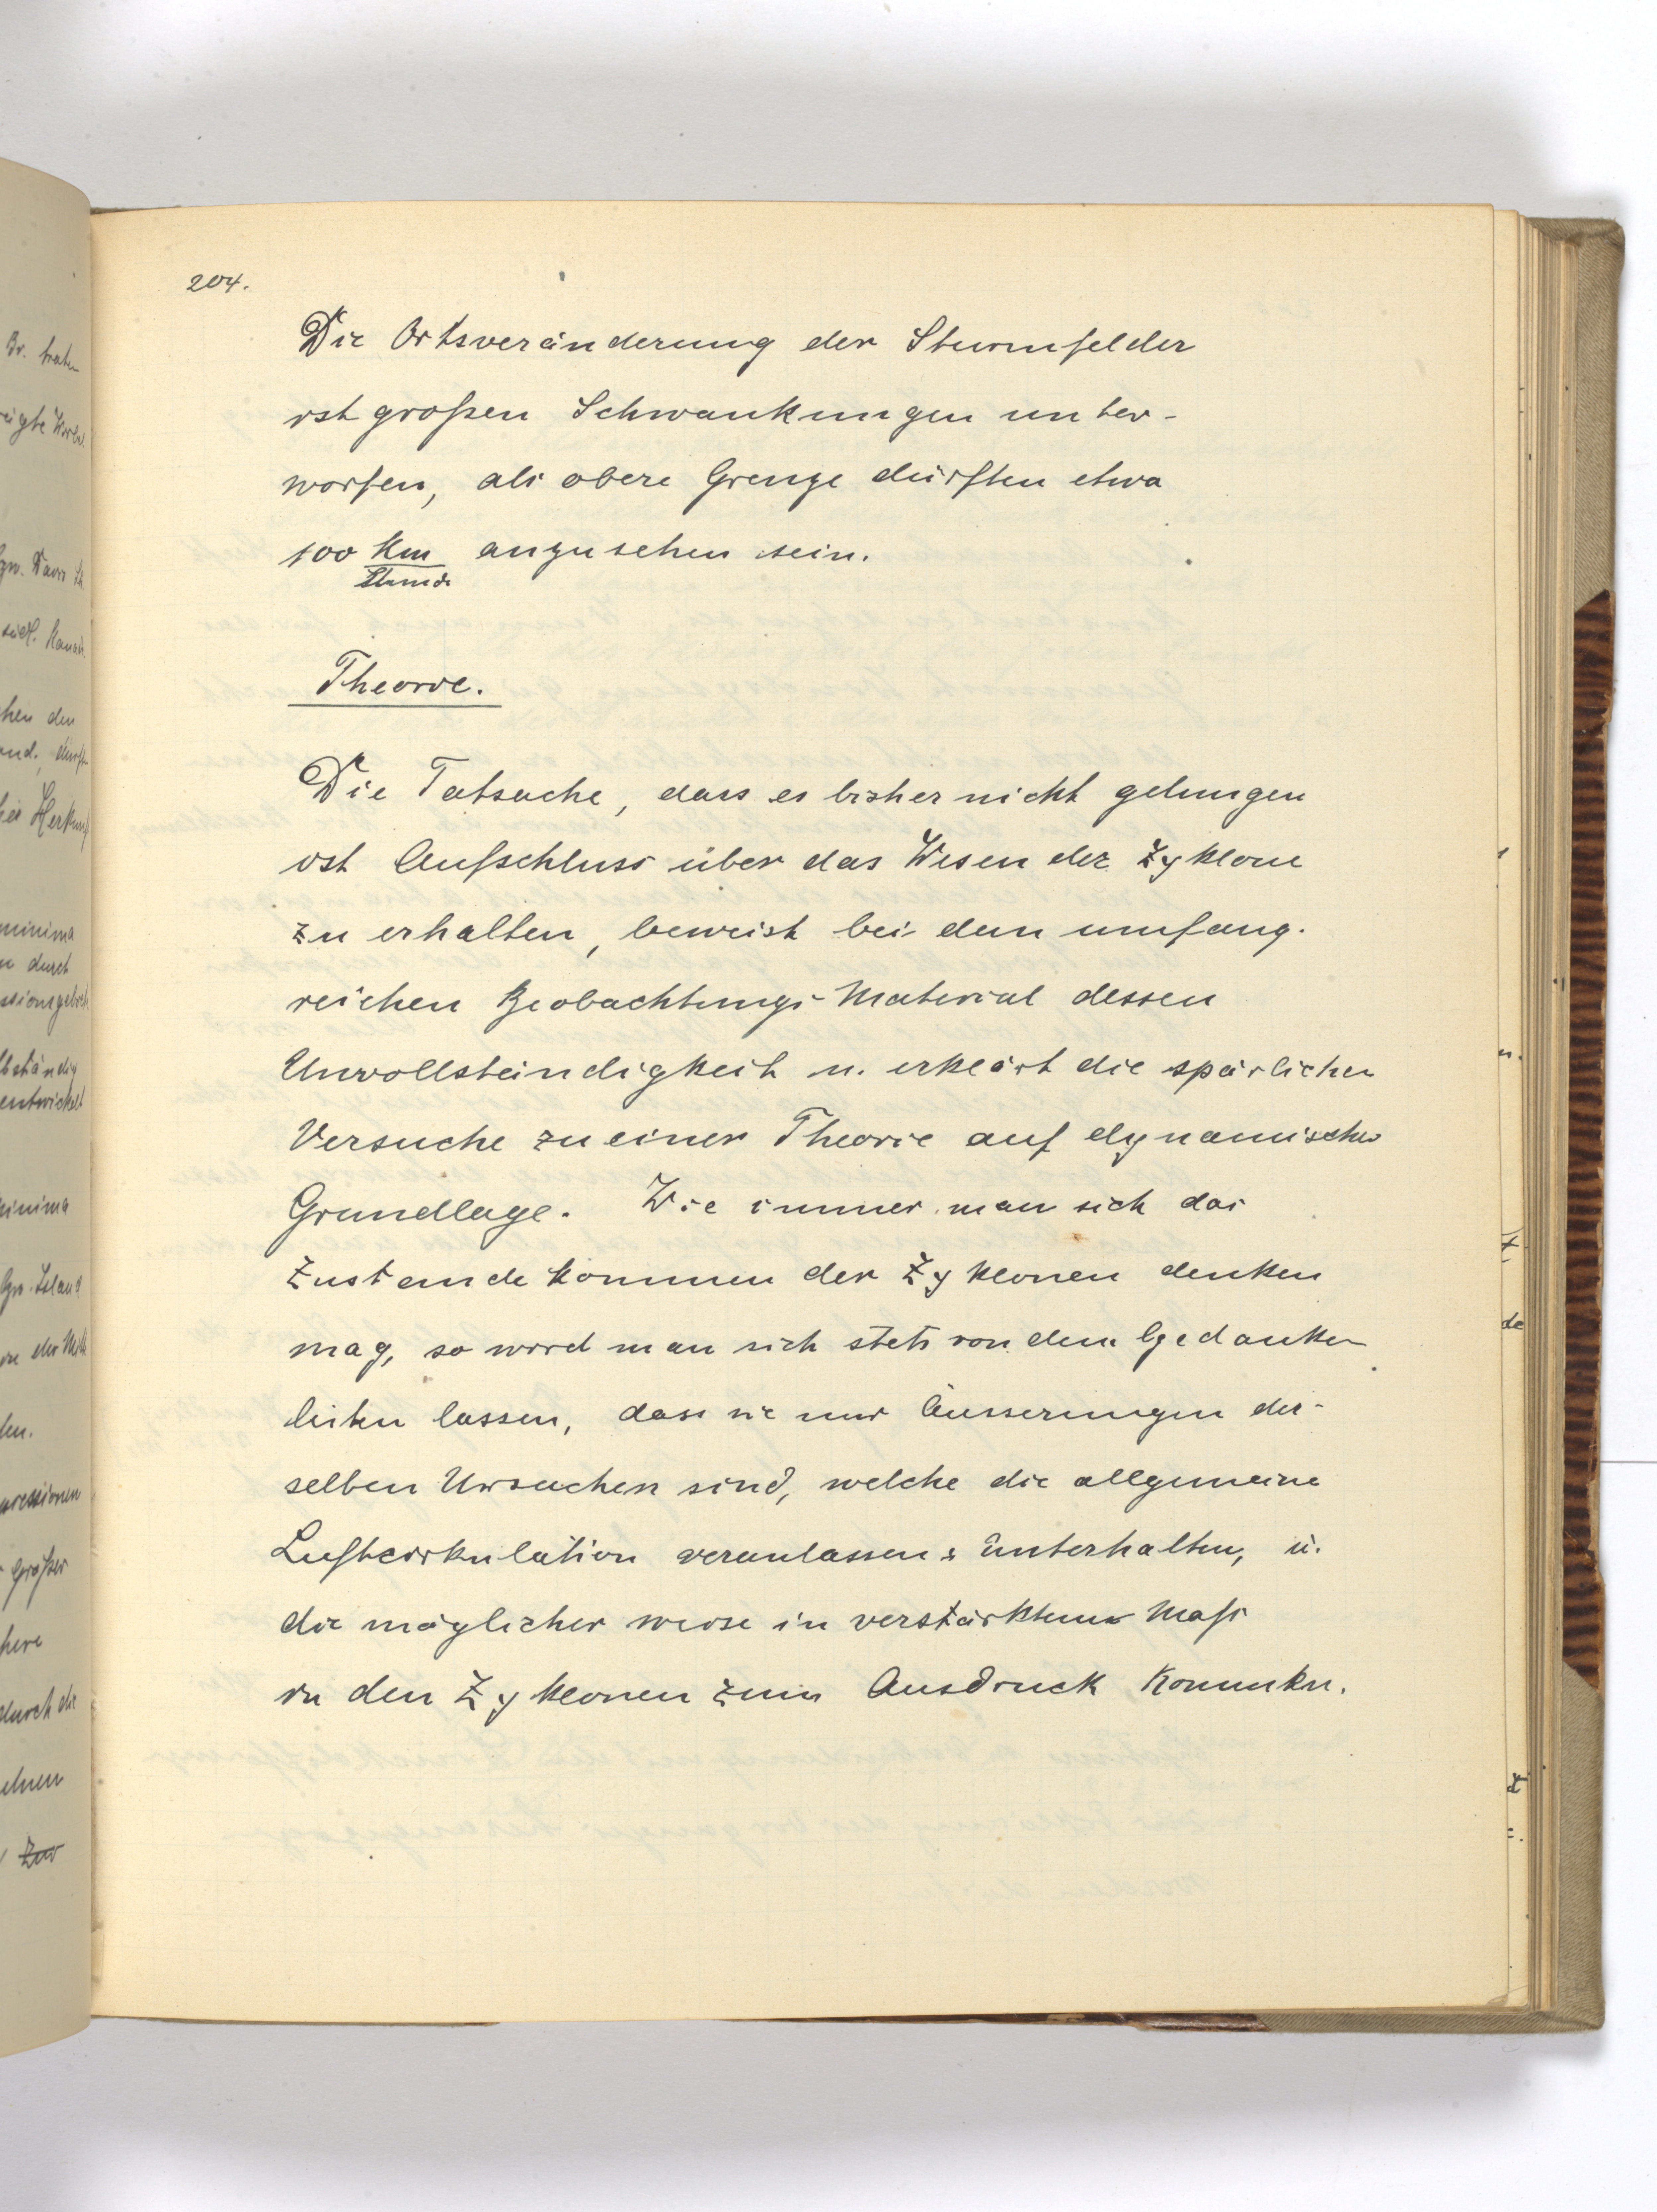 204.
Die Ortsveränderung der Sturmfelder
ist großen Schwankungen unter-
worfen, als obere Grenze dürften etwa
100 Km anzusehen sein.
Stunde
Theorie.
Die Tatsache, dass es bisher nicht gelungen
ist Aufschluss über das Wesen der Zyklone
zu erhalten, beweist bei dem umfang-
reichen Beobachtungs-Material dessen
Unvollständigkeit u. erklärt die spärlichen
Versuche zu einer Theorie auf dynamischer
Grundlage. Wie immer man sich das
Zustandekommen der Zyklonen denken
mag, so wird man sich stets von dem Gedanken
leiten lassen, dass sie nur Äusserungen der-
selben Ursachen sind, welche die allgemeine
Luftcirkulation veranlassen & unterhalten, u.
die möglicher weise in verstärktem Maß
in den Zyklonen zum Ausdruck kommen.
Br. traten
südl. Kanada
chen den
and. dürft
minima
n durch
ssionsgebiet
bständig
entwickelt
minima
Gr. Island
in der Mitte
pressionen
größer
here
durch die
Zur